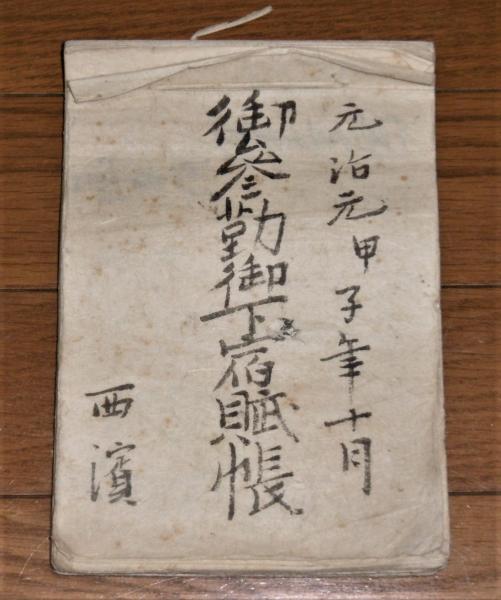 元治元甲子年十月
御參勤御下宿賦帳
西濱